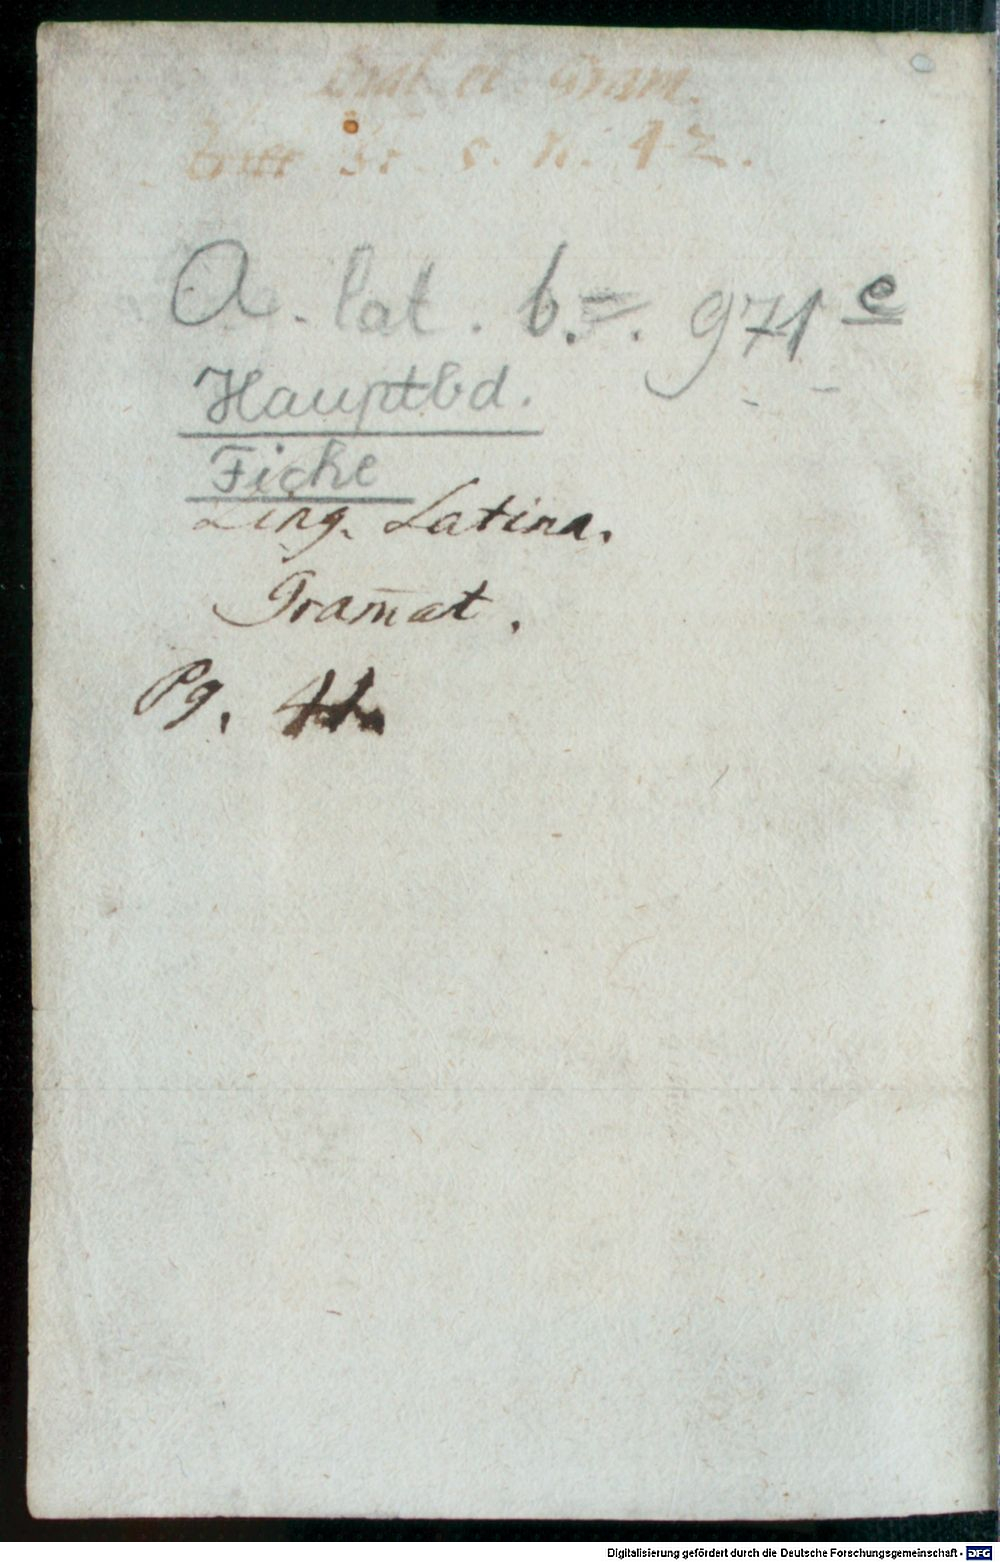 et Gram.
N. 42.
A. lat. b. 971 e
Hauptbd.
Fiche
Ling. Latina.
Gram̄at.
Pg.
Digitalisierung gefördert durch die Deutsche Forschungsgemeinschaft - DFG